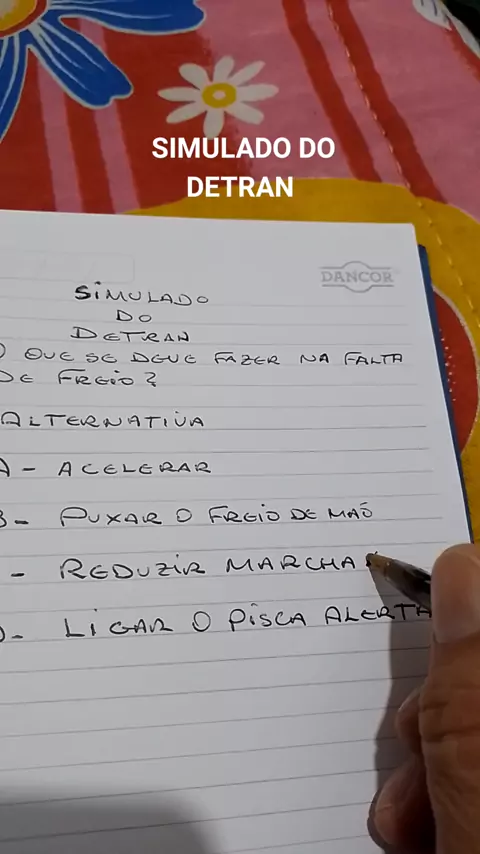 SIMULADO DO
DETRAN
DANCOR
SIMULADO
DO
DETRAN
O QUE SE DEVE FAZER NA FALTA
DE FREIO?
ALTERNATIVA
A - ACELERAR
B - PUXAR O FREIO DE MAÕ
- REDUZIR MARCHA
D - LIGAR O PISCA ALERTA